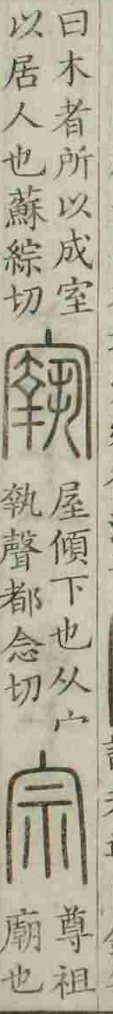 曰木者所以成室
以居人也蘇綜切
㝪
屋傾下也从宀
執聲都念切
宗
尊祖
廟也